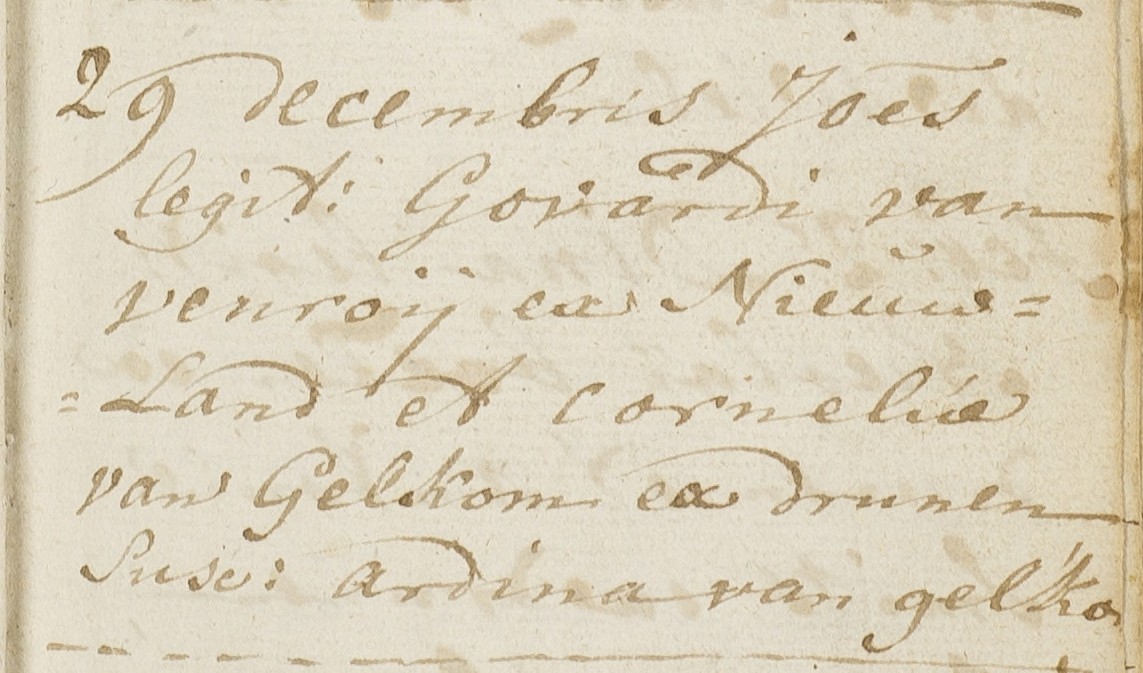 29 decembris Joes
legit: Govardi van
venroij ex Nieuw=
=Land et corneliæ
van Gelkom ex drunen
Susc: ardina van gelko